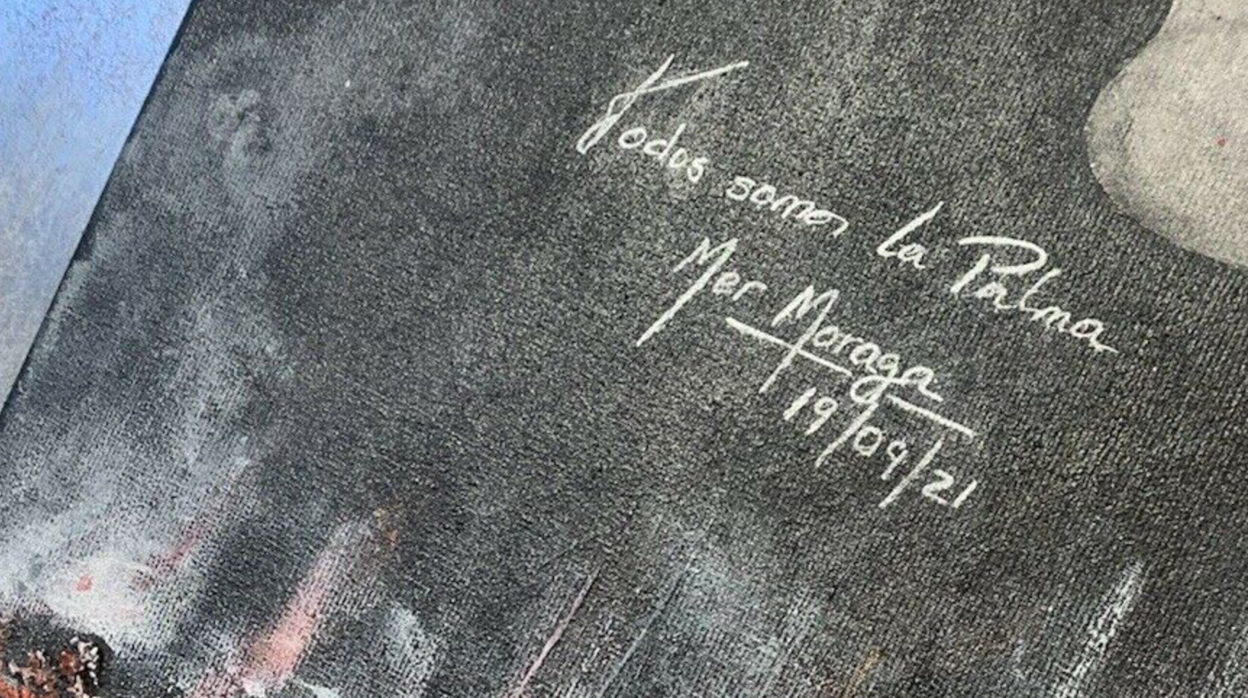 Todos somos la Palma
Mer Moraga
19/09/21